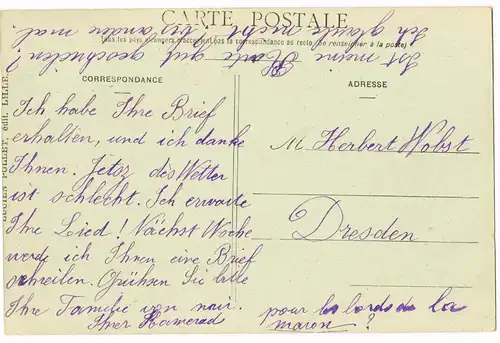 CARTE POSTALE
Tous les pays étrangers n'acceptent pas la correspondance au recto. (Se renseigner à la poste)
CORRESPONDANCE
Ich habe Ihre Brief
erhalten, und ich danke
Ihnen. Jetoz dès Wetter
ist schlecht. Ich erwarte
Ihre Lied! Nächst Woche
werde ich Ihnen eine Brief
schreilen. Grühsen Sie bitte
Ihre Familie von mir.
Ihrer Kamerad
Ist meine Karte gut geschrieben?
Ich glaube nicht
ADRESSE
M Herbert Wobst
Dresden
pour les bords de la
maron ?
LUCIEN POLLET, édit. LILLE